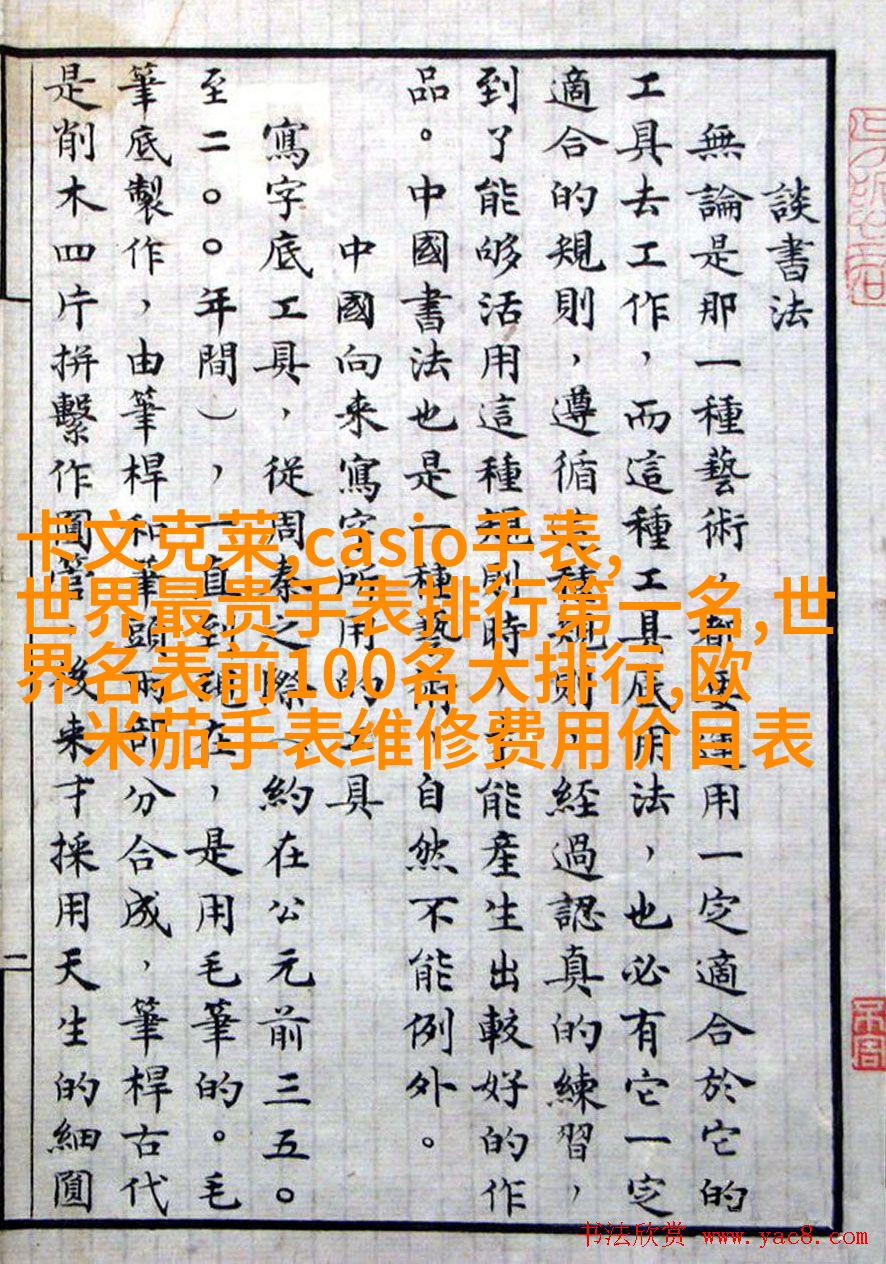 談書法
無論是那一種藝術，都要運用一定適合於它的
工具去工作，而這種工具底用法，也必有它一定
適合的規則，遵循這種規則，經過認真的練習，
到了能够活用這種規則時，才能產生出較好的作
品。中國書法也是一種藝術，自然不能例外。
中國向来寫字所用的工具
寫字底工具，從周秦之際（約在公元前三五〇
至二〇〇年間），一直到現在，是用毛筆的。毛
筆底製作，由筆桿和筆頭兩部分合成，筆桿古代
是削木四片拼繫作圓管，後来才採用天生的細圓
二
卡文克莱,casio手表,
世界最贵手表排行第一名,世
界名表前100名大排行,欧
米茄手表维修费用价目表
书法欣赏 www.yac8.com